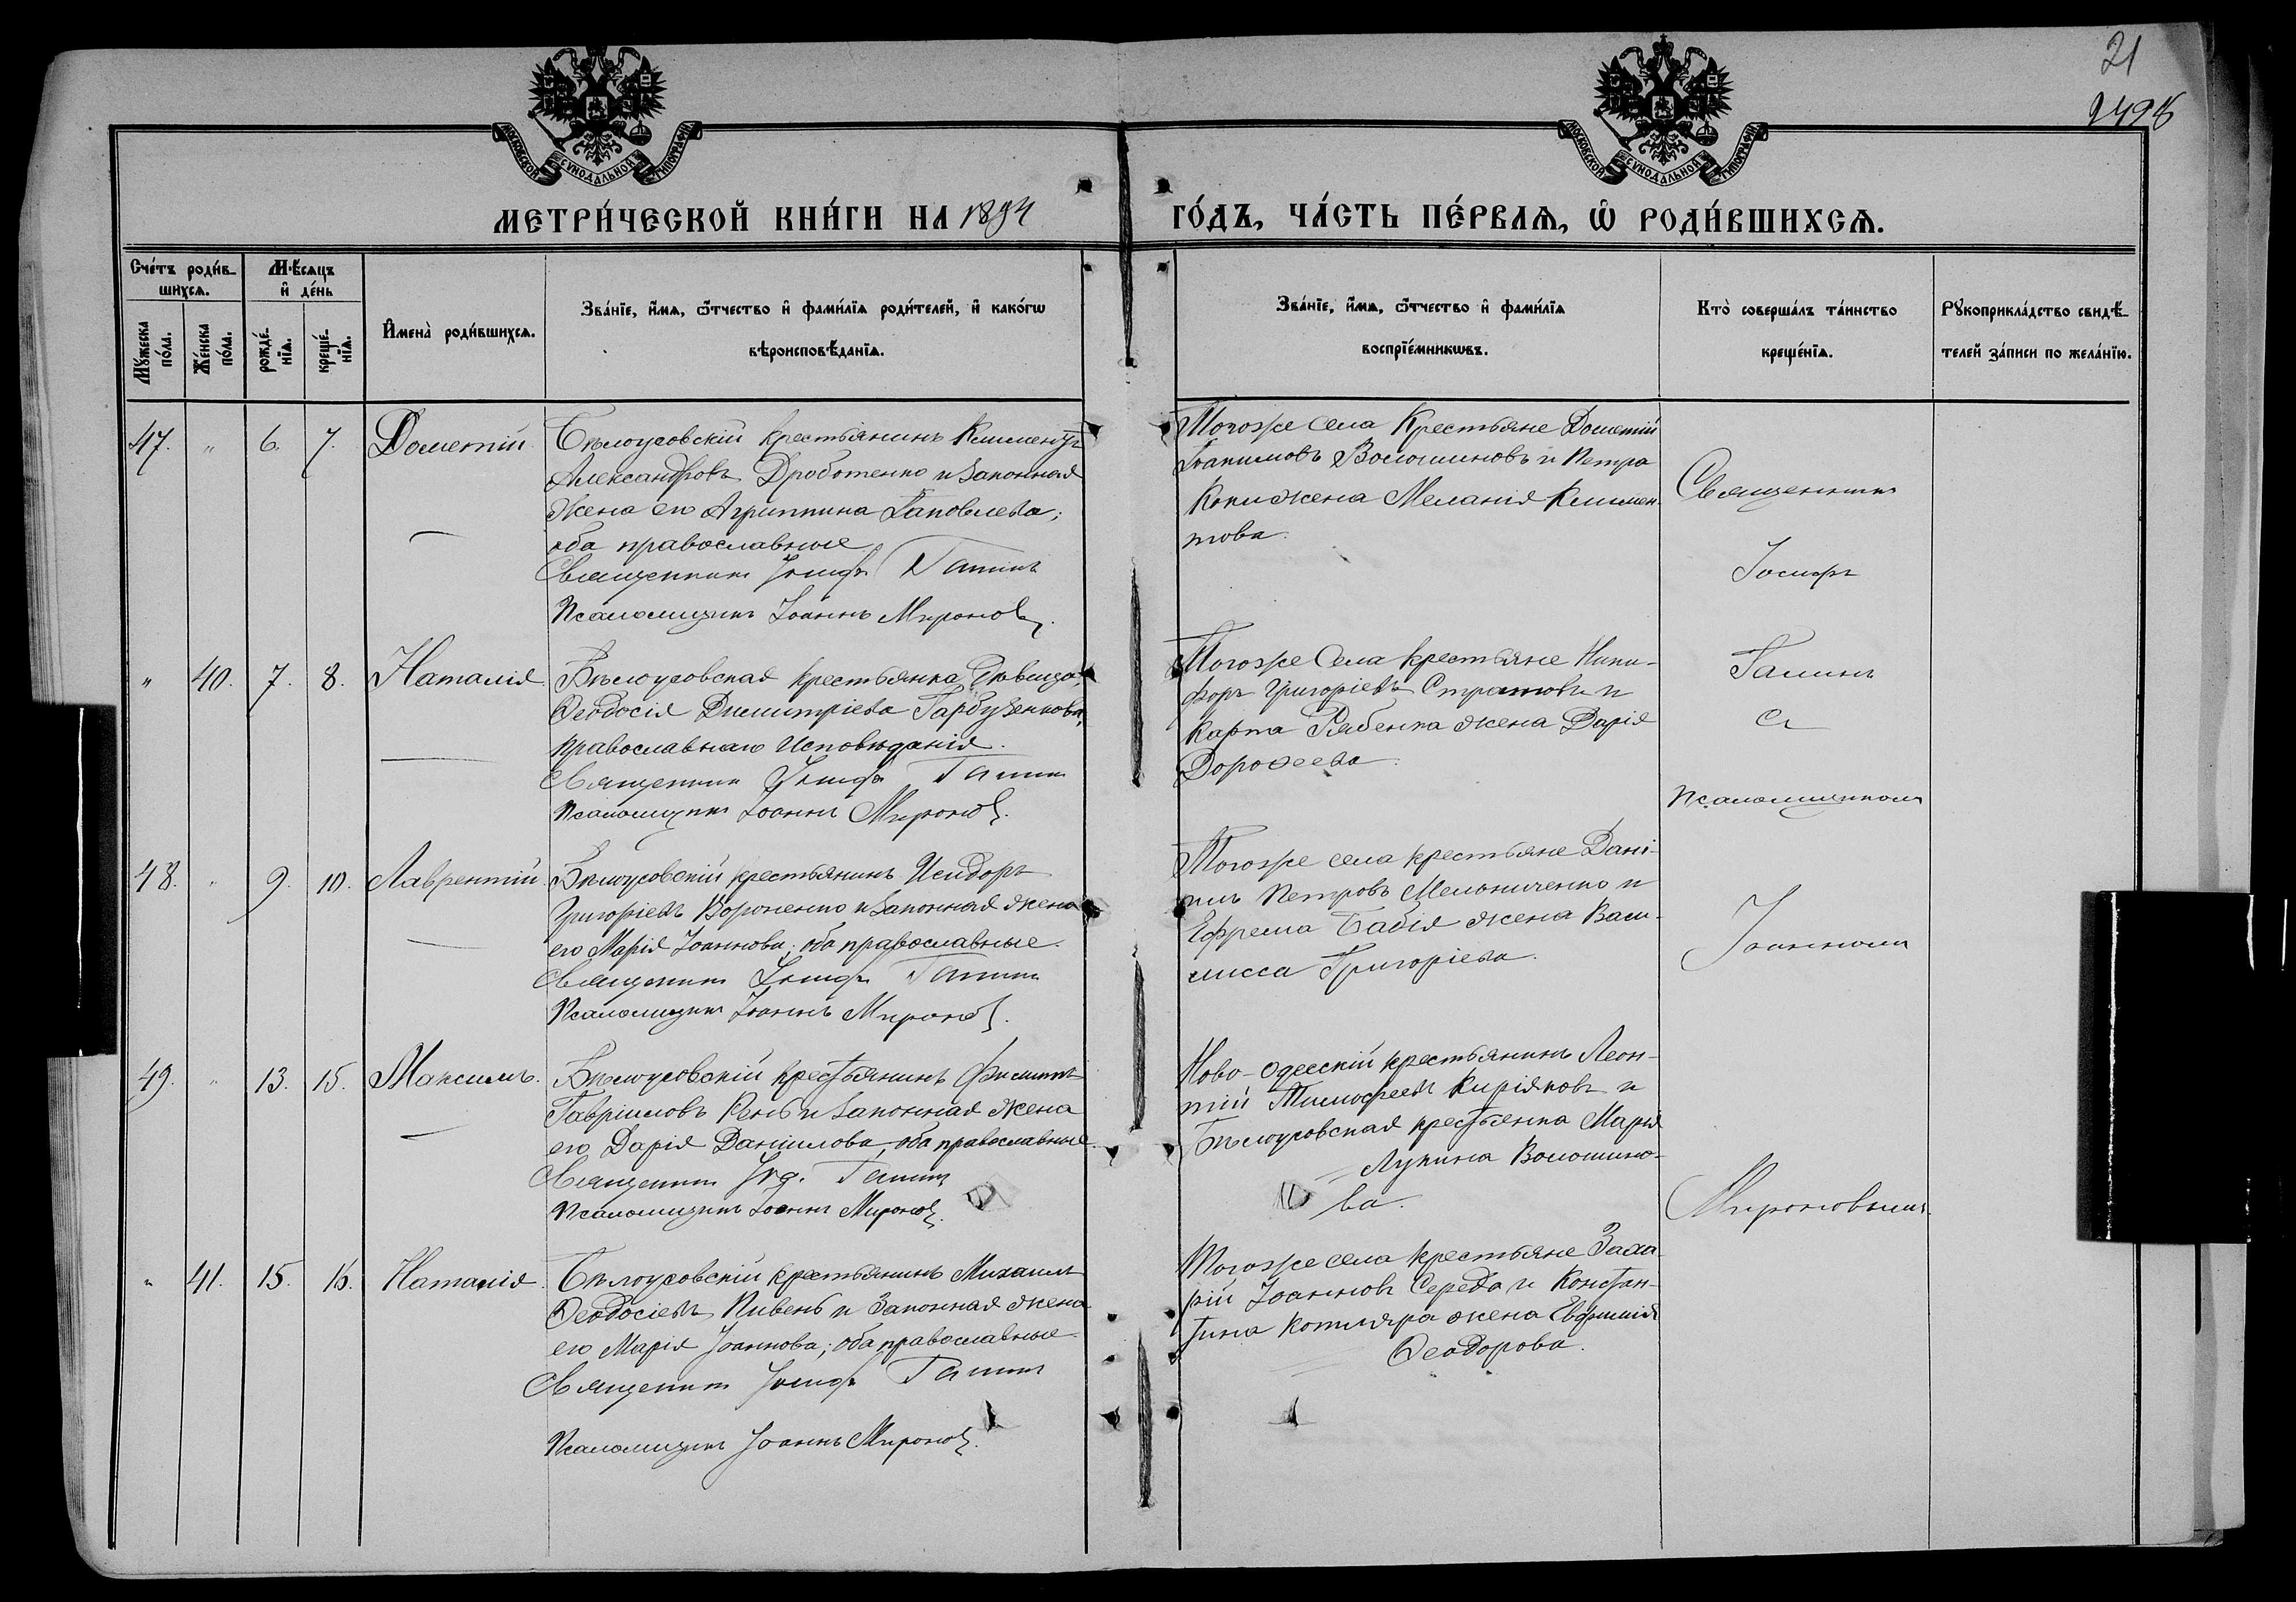 21
2498
МОСКОВСКОЙ СѴНОДАЛЬНОЙ ТИПОГРАФІИ
МОСКОВСКОЙ СѴНОДАЛЬНОЙ ТИПОГРАФІИ
МЕТРИ́ЧЕСКОЙ КНИ́ГИ НА 1894 ГО́ДЪ, ЧА́СТЬ ПЕ́РВАѦ, Ѡ҆ РОДИ́ВШИХСѦ.
Сче́тъ роди́в-
шихсѧ.
Мѣ́сѧцъ
и҆ де́нь
Мꙋ́жеска
по́ла.
Же́нска
по́ла.
рожде́-
нїѧ.
креще́-
нїѧ.
И҆мена̀ роди́вшихсѧ.
Зва́нїе, и҆́мѧ, ѻ҆́тчество и҆ фами́лїѧ роди́телей, и҆ како́гѡ
вѣроисповѣ́данїѧ.
Зва́нїе, и҆́мѧ, ѻ҆́тчество и҆ фами́лїѧ
воспрїе́мникѡвъ.
Кто̀ соверша́лъ та́инство
креще́нїѧ.
Рꙋкоприкла́дство свидѣ́-
телей за́писи по жела́нїю.
47. " 6. 7. Дометій
Бѣлоусовскій крестьянинъ Климентъ
Александровъ Дроботенко и законная
жена его Агриппина Іаковлева;
оба православные
Священникъ Іосифъ Галинъ
Псаломщикъ Іоаннъ Мироновъ.
Тогоже села Крестьяне Дометій
Іоакимовъ Волошиновъ и Петра
жена Меланія Климен-
това.
" 40. 7. 8. Наталія.
Бѣлоусовская крестьянка дѣвица,
Ѳеодосія Димитріева Гарбузенкова,
православнаго Исповѣданія.
Священникъ Іосифъ Галинъ
Псаломщикъ Іоаннъ Мироновъ.
Тогоже Села крестьяне Ники-
форъ Григоріевъ и
Карпа Рябенка жена Дарія
Дороѳеева.
48. " 9. 10. Лаврентій.
Бѣлоусовскій крестьянинъ Исидоръ
Григоріевъ Вороненко и законная жена
его Марія Іоаннова; оба православные.
Священникъ Іосифъ Галинъ
Псаломщикъ Іоаннъ Мироновъ.
Тогоже села крестьяне Дані-
илъ Петровъ Мельниченко и
Ефрема Бабія жена Васи-
лисса Григоріева.
49. " 13. 15. Максимъ.
Бѣлоусовскій крестьянинъ Филиппъ
Гавріиловъ Рень и законная жена
его Дарія Даніилова, оба православные.
Священникъ Галинъ
Псаломщикъ Іоаннъ Мироновъ.
Ново-Одесскій крестьянинъ Леон-
тій Тимофеевъ Киріяковъ и
Бѣлоусовская крестьянка Марія
Лукина Волошино-
ва.
" 41. 15. 16. Наталія.
Бѣлоусовскій крестьянинъ Михаилъ
Ѳеодосіевъ Пивень и Законная жена
его Марія Іоаннова; оба православные
Священникъ Іосифъ Галинъ
Псаломщикъ Іоаннъ Мироновъ.
Тогоже села крестьяне Заха-
рій Іоанновъ Середа и Констан-
тина Котляра жена Евфимія
Ѳеодорова.
Священникъ
Іосифъ
Галинъ
съ
Псаломщикомъ
Іоанномъ
Мироновымъ.